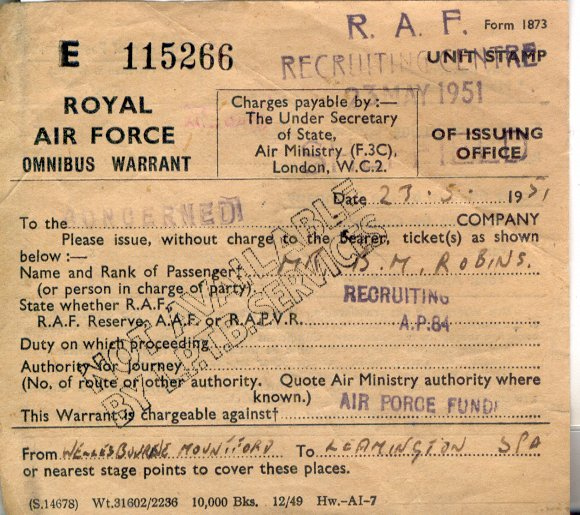 R. A. F. Form 1873
E 115266
RECRUITING CENTRE
UNIT STAMP
23 MAY 1951
ROYAL
AIR FORCE
OMNIBUS WARRANT
Charges payable by:—
The Under Secretary
of State,
Air Ministry (F.3C),
London, W.C.2.
OF ISSUING
OFFICE
Date 23. 5. 1951
To the CONCERNED COMPANY
Please issue, without charge to the bearer, ticket(s) as shown
below :—
Name and Rank of Passenger† Mr B. M. ROBINS.
(or person in charge of party)
State whether R.A.F. RECRUITING
R.A.F. Reserve, A.A.F. or R.A.F.V.R. A.P.84
Duty on which proceeding
Authority for journey
(No. of route or other authority. Quote Air Ministry authority where
known.)
This Warrant is chargeable against† AIR FORCE FUND
NOT AVAILABLE
BY L.P.T.B. SERVICES
From WELLESBOURNE MOUNTFORD To LEAMINGTON SPA
or nearest stage points to cover these places.
(S.14678) Wt.31602/2236 10,000 Bks. 12/49 Hw.-AI-7